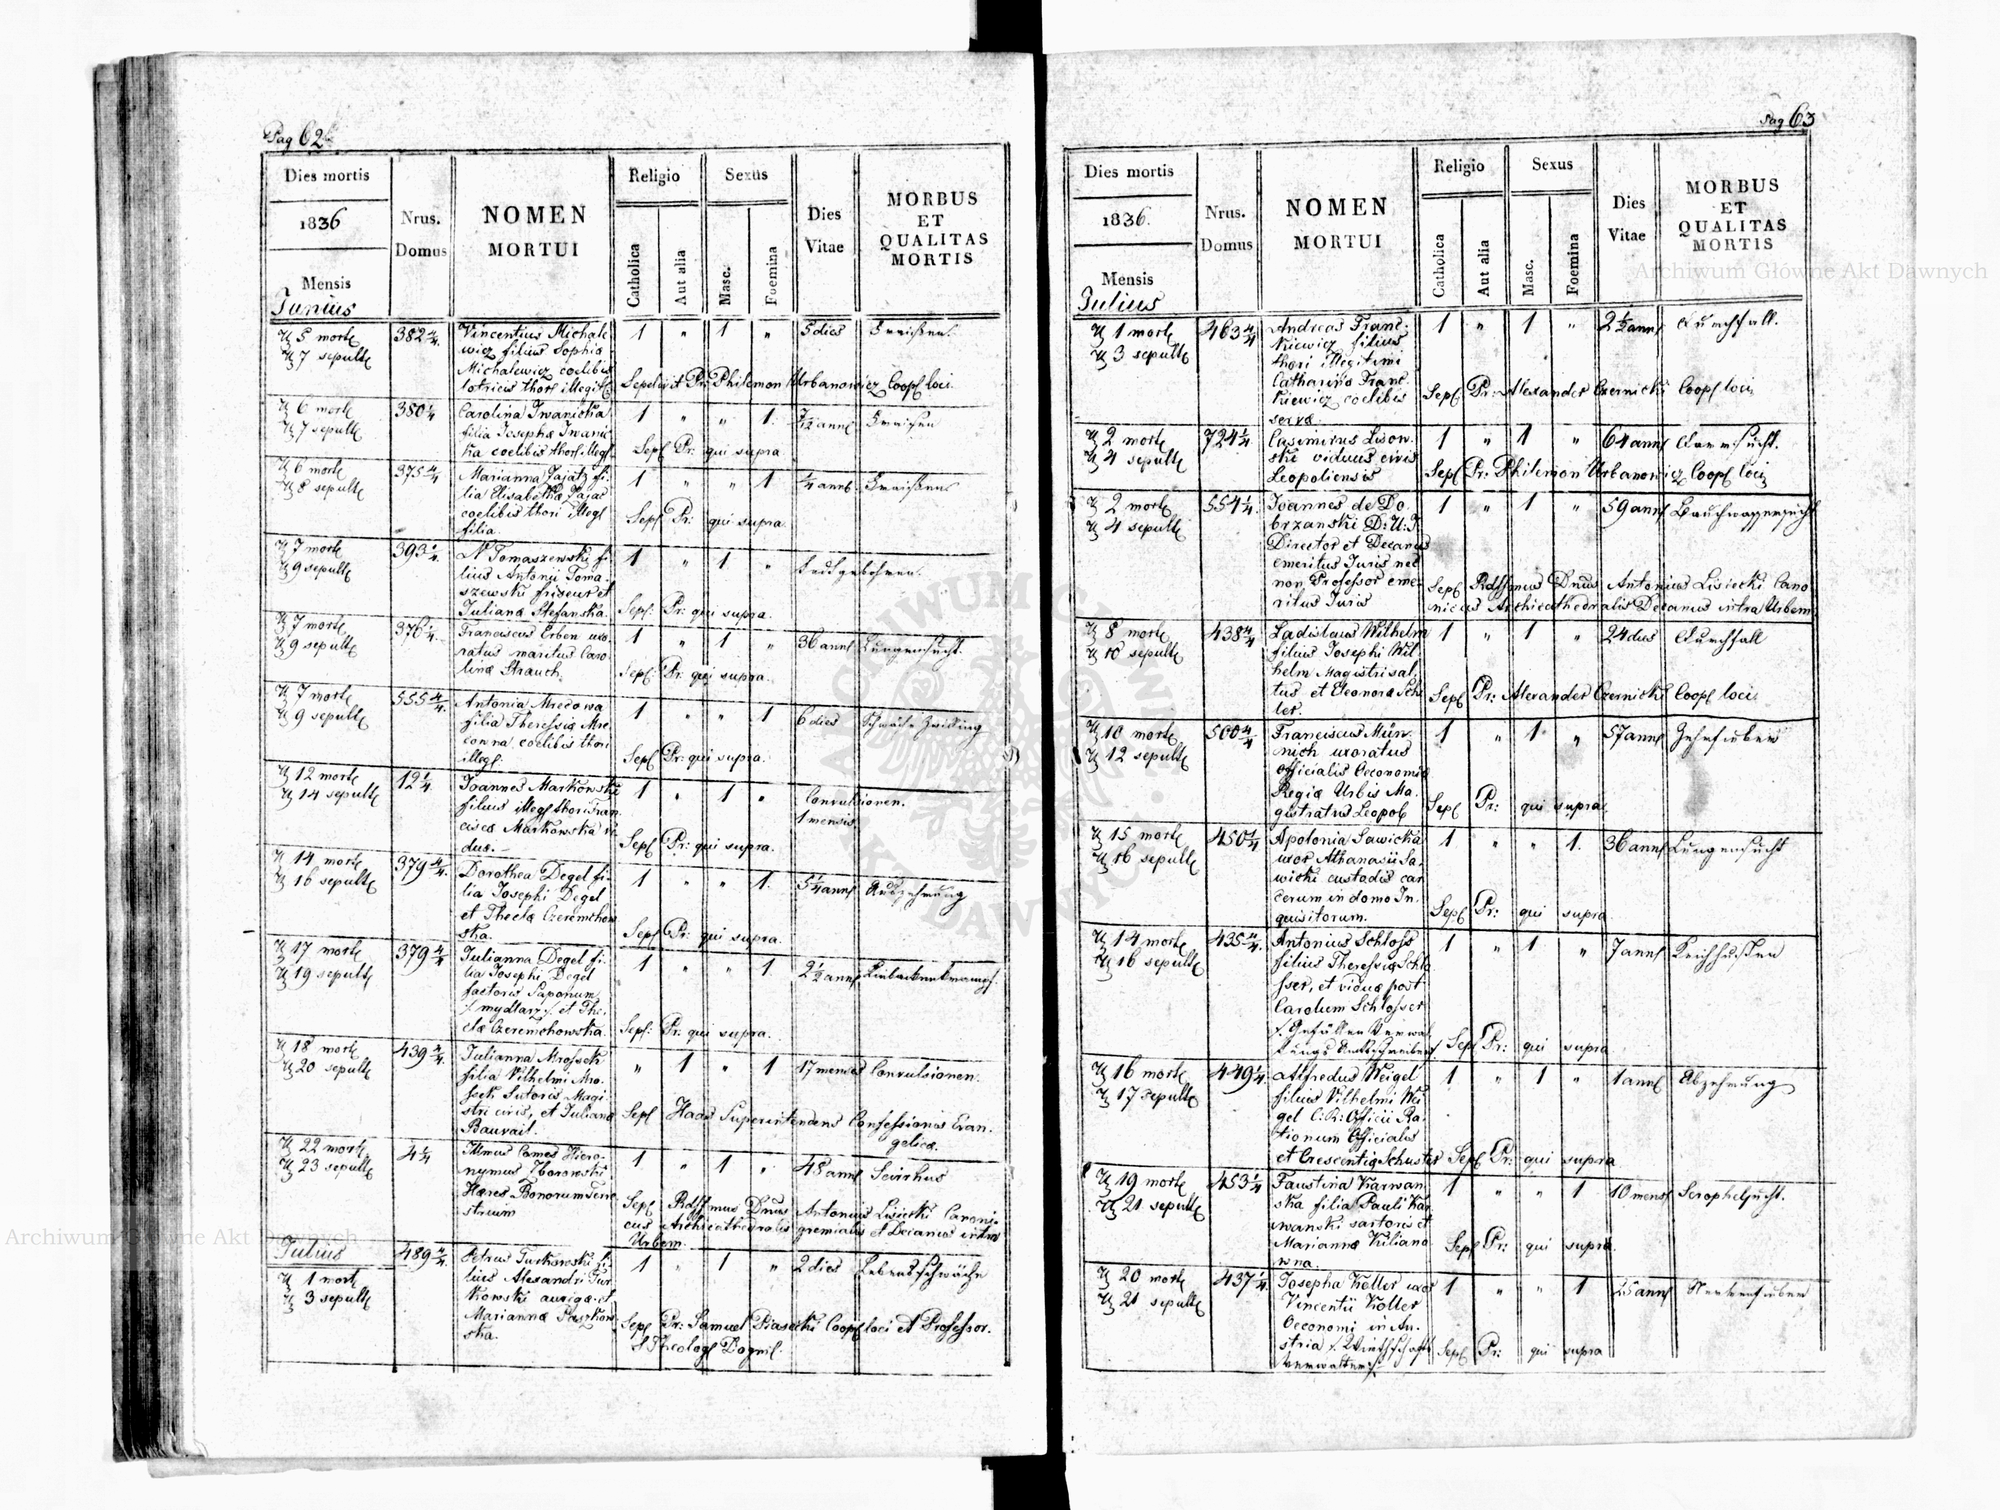 Pag 62
Dies mortis
1836
Mensis
Junius
Nrus. Domus
NOMEN MORTUI
Religio
Catholica
Aut alia
Sexus
Masc.
Foemina
Dies Vitae
MORBUS ET QUALITAS MORTIS
5 mort
7 sepult
382 4/4
Vincentius Michale
wicz filius Sophiæ
Michalewicz coelibis
lotricis thori illegit
1 " 1 "
5 dies
Fraißen.
Sepelivit Pr: Philemon Urbanowicz Coop loci.
6 mort
7 sepult
380 1/4
Carolina Iwanicka
filia Josephæ Iwanic
ka coelibis thori illeg
1 " " 1.
7/12 anni
Fraisen
Sep Pr: qui supra
6 mort
8 sepult
375 4/4
Marianna Zajatz fi-
lia Elisabethæ Zajac
coelibis thori illeg
filia
1 " " 1
1/4 anni
Fraißen
Sep Pr: qui supra.
7 mort
9 sepult
393 1/4
N Tomaszewski fi-
lius Antonii Toma
szewski friseur et
Julianæ Stefanska.
1 " 1 "
todtgebohren.
Sep: Pr: qui supra.
7 mort
9 sepult
376 1/4
Franciscus Erben uxo
ratus maritus Caro
linæ Strauch
1 " 1 "
36 ann
Lungensucht.
Sep: Pr: qui supra.
7 mort
9 sepult
555 4/4
Antonia Mredowa
filia Theressiæ Mre
cowna, coelibis thori
illeg:
1 " " 1
6 dies
Schwäche Zwilling
Sep Pr: qui supra.
12 mort
14 sepult
12 1/4
Joannes Markowski
filius illeg thori Fran
ciscæ Markowska vi
duæ.
1 " 1 "
Convulsionen.
1 mensis
Sep Pr: qui supra.
14 mort
16 sepult
379 4/4
Dorothea Degel fi-
lia Josephi Degel
et Theclæ Czeremchow
ska.
1 " " 1.
5 1/4 ann
Auszehrung
Sep Pr: qui supra.
17 mort
19 sepult
379 4/4
Julianna Degel fi-
lia Josephi Degel
factoris Saponum
/: mydlarz :/ et The-
clæ Czeremchowska.
1 " " 1
2 1/2 ann
Kinbackenkrampf.
Sep: Pr: qui supra.
18 mort
20 sepult
439 4/4
Julianna Mrossek
filia Vilhelmi Mro
seck Sutoris Magi
stri civis, et Julianæ
Bauvait.
" 1 " 1
17 menses
Convulsionen.
Sep Haas Superintendens Confessionis Evan.
gelicæ.
22 mort
23 sepult
4 1/4
Illmus Comes Hiero-
nymus Zborowski
Hæres Bonorum Terre
strium
1 " 1 "
48 anni
Scirrhus
Sep Rdssmus Dnus Antonius Lisiecki Canoni-
cus Archicathedralis gremialis et Decanus intra
Urbem.
Julius
1 mort
3 sepult
489 4/4
Petrus Turkowski fi-
lius Alexandri Tur
kowski aurigæ et
Mariannæ Paszkow
ska.
1 " 1 "
2 dies
Lebensschwäche
Sep Pr: Samuel Piasecki Coop loci et Professor.
S Theolog Dogm:
Pag 63
Dies mortis
1836.
Mensis
Julius
Nrus. Domus
NOMEN MORTUI
Religio
Catholica
Aut alia
Sexus
Masc.
Foemina
Dies Vitae
MORBUS ET QUALITAS MORTIS
1 mort
3 sepult
463 4/4
Andreas Franc-
kiewicz filius
thori illegitimi
Catharinæ Franc-
kiewicz coelibis
servæ.
1 " 1 "
2 1/2 ann
Durchfall.
Sep Pr: Alexander Czernicki Coop loci
2 mort
4 sepult
724 1/4
Casimirus Lisow-
ski viduus civis
Leopoliensis
1 " 1 "
64 ann
Darmsucht.
Sep Pr: Philemon Urbanowicz Coop loci
2 mort
4 sepult
554 1/4
Joannes de Do
brzanski D: U: J:
Director et Decanus
emeritus Juris nec
non Professor eme-
ritus Juris
1 " 1 "
59 ann
Bauchwassersucht
Sep Rdssmus Dnus Antonius Lisiecki Cano
nicus Archicathedralis Decanus intra Urbem
8 mort
10 sepult
438 4/4
Ladislaus Wilhelm
filius Josephi Wil-
helm Magistrisal-
tus et Eleonoræ Schil
ler.
1 " 1 "
24 dies
Durchfall
Sep Pr: Alexander Czernicki Coop loci.
10 mort
12 sepult
500 4/4
Franciscus Mün-
nich uxoratus
Officialis Oeconomiæ
Regiæ Urbis Ma-
gistratus Leopol
1 " 1 "
57 ann
Zehrfieber
Sep Pr: qui supra
15 mort
16 sepult
450 1/4
Apolonia Sawicka
uxor Athanasii Sa-
wicki custodis car
cerum in domo In-
quisitorum.
1 " " 1.
36 ann
Lungensucht
Sep Pr: qui supra
14 mort
16 sepult
435 4/4
Antonius Schloss
filius Theressiæ Schlo
sser, et viduæ post
Carolum Schlosser
/: Gefällen Verwal
tungs Amtsschreiber :/
1 " 1 "
7 ann
Keichhusten
Sep Pr: qui supra
16 mort
17 sepult
449 1/4
Alfredus Weigel
filius Vilhelmi Wei
gel C: R: Officii Ra-
tionum Officialis
et Crescentiæ Schuster
1 " 1 "
1 ann
Abzehrung
Sep Pr: qui supra
19 mort
21 sepult
453 1/4
Faustina Karwan
ska filia Pauli Kar
wanski sartoris et
Mariannæ Kiliano
wna.
1 " " 1
10 mens
Scrophelsucht.
Sep Pr: qui supra
20 mort
21 sepult
437 1/4
Josepha Koller uxor
Vincentii Koller
Oeconomi in Au-
stria /: Wirthschafts
Verwalter :/
1 " " 1
25 ann
Nervenfieber
Sep Pr: qui supra
Archiwum Główne Akt Dawnych
Archiwum Główne Akt Dawnych
ARCHIWUM GŁÓWNE AKT DAWNYCH